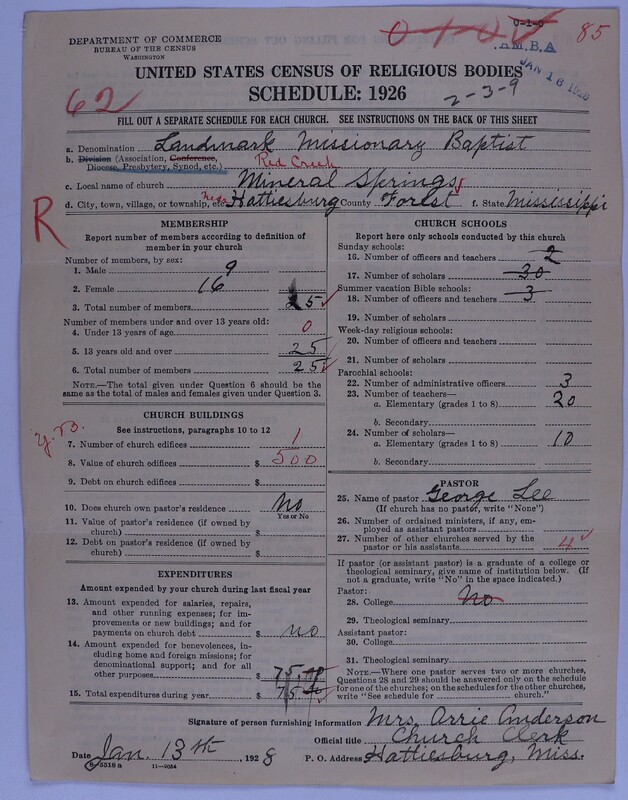 0-1-0
85
DEPARTMENT OF COMMERCE
BUREAU OF THE CENSUS
WASHINGTON
A.M.B.A
JAN 18 1928
UNITED STATES CENSUS OF RELIGIOUS BODIES
62
SCHEDULE: 1926
2-3-9
FILL OUT A SEPARATE SCHEDULE FOR EACH CHURCH. SEE INSTRUCTIONS ON THE BACK OF THIS SHEET
a. Denomination Landmark Missionary Baptist
b. Division (Association, Conference, Red Creek
Diocese, Presbytery, Synod, etc.)
c. Local name of church Mineral Springs
d. City, town, village, or township, etc. near Hattiesburg County Forest f. State Mississippi
R
MEMBERSHIP
Report number of members according to definition of
member in your church
Number of members, by sex:
1. Male 9
2. Female 16
3. Total number of members 25
Number of members under and over 13 years old:
4. Under 13 years of age 0
5. 13 years old and over 25
6. Total number of members 25
NOTE.—The total given under Question 6 should be the
same as the total of males and females given under Question 3.
CHURCH BUILDINGS
See instructions, paragraphs 10 to 12
7. Number of church edifices 1
8. Value of church edifices $ 500
9. Debt on church edifices $
10. Does church own pastor's residence No
Yes or No
11. Value of pastor's residence (if owned by
church) $
12. Debt on pastor's residence (if owned by
church) $
EXPENDITURES
Amount expended by your church during last fiscal year
13. Amount expended for salaries, repairs,
and other running expenses; for im-
provements or new buildings; and for
payments on church debt $ no
14. Amount expended for benevolences, in-
cluding home and foreign missions; for
denominational support; and for all
other purposes $ 75.
15. Total expenditures during year $ 75
CHURCH SCHOOLS
Report here only schools conducted by this church
Sunday schools:
16. Number of officers and teachers 2
17. Number of scholars 30
Summer vacation Bible schools:
18. Number of officers and teachers 3
19. Number of scholars
Week-day religious schools:
20. Number of officers and teachers
21. Number of scholars
Parochial schools:
22. Number of administrative officers 3
23. Number of teachers—
a. Elementary (grades 1 to 8) 20
b. Secondary
24. Number of scholars—
a. Elementary (grades 1 to 8) 10
b. Secondary
PASTOR
25. Name of pastor George Lee
(If church has no pastor, write "None")
26. Number of ordained ministers, if any, em-
ployed as assistant pastors
27. Number of other churches served by the
pastor or his assistants 4
If pastor (or assistant pastor) is a graduate of a college or
theological seminary, give name of institution below. (If
not a graduate, write "No" in the space indicated.)
Pastor:
28. College No
29. Theological seminary
Assistant pastor:
30. College
31. Theological seminary
NOTE.—Where one pastor serves two or more churches,
Questions 28 and 29 should be answered only on the schedule
for one of the churches; on the schedules for the other churches,
write "See schedule for church."
Signature of person furnishing information Mrs. Arrie Anderson
Official title Church Clerk
Date Jan. 13th 1928 P. O. Address Hattiesburg, Miss.
8-5518a 11-2034